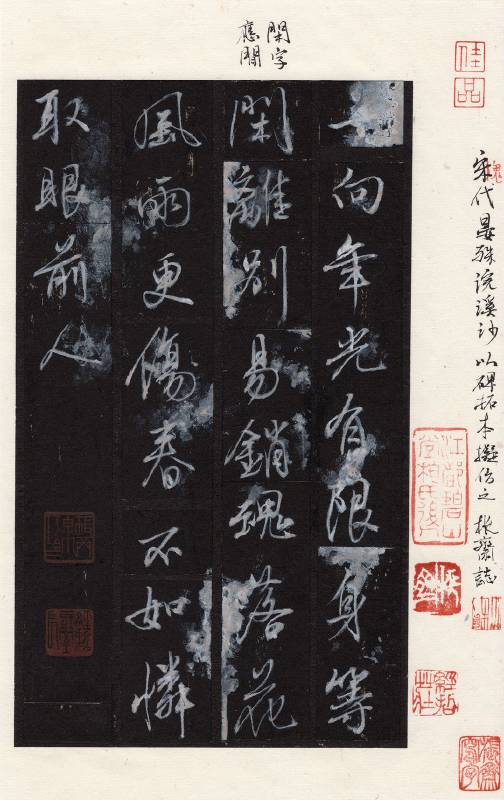 佳品
閑字
應閒
一向年光有限身等
閑離別易銷魂落花
風雨更傷春不如憐
取眼前人
宋代晏殊浣溪沙以碑拓本擬之齋誌
江都碧山